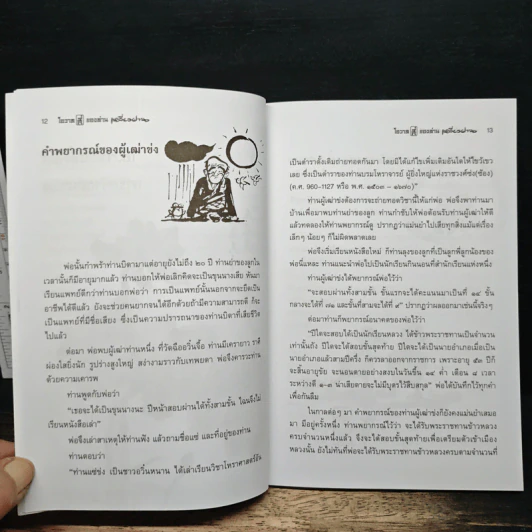 12 โอวาท สี่ ของท่าน
คำพยากรณ์ของผู้เฒ่าข่ง
พ่อนั้นกำพร้าท่านบิดามาแต่อายุยังไม่ถึง ๒๐ ปี ท่านย่าของลูกใน
เวลานั้นก็มีอายุมากแล้ว ท่านบอกให้พ่อเลิกคิดจะเป็นขุนนางเสีย หันมา
เรียนแพทย์ดีกว่าท่านบอกพ่อว่า การเป็นแพทย์นั้นนอกจากจะยึดเป็น
อาชีพได้ดีแล้ว ยังจะช่วยคนยากจนได้อีกด้วยถ้ามีความสามารถดี ก็จะ
เป็นแพทย์ที่มีชื่อเสียง ซึ่งเป็นความปรารถนาของท่านบิดาที่เสียชีวิต
ไปแล้ว
ต่อมา พ่อพบผู้เฒ่าท่านหนึ่ง ที่วัดฉืออวิ๋นจื้อ ท่านมีเครายาว ราศี
ผ่องใสยิ่งนัก รูปร่างสูงใหญ่ สง่างามราวกับเทพยดา พ่อจึงคารวะท่าน
ด้วยความเคารพ
ท่านพูดกับพ่อว่า
“เธอจะได้เป็นขุนนางนะ ปีหน้าสอบผ่านได้ทั้งสามชั้น ไฉนจึงไม่
เรียนหนังสือเล่า”
พ่อจึงเล่าสาเหตุให้ท่านฟัง แล้วถามชื่อแซ่ และที่อยู่ของท่าน
ท่านตอบว่า
“ท่านแซ่ข่ง เป็นชาวอวิ๋นหนาน ได้เล่าเรียนวิชาโหราศาสตร์อัน
โอวาท สี่ ของท่าน 13
เป็นตำราดั้งเดิมถ่ายทอดกันมา โดยมิได้แก้ไขเพิ่มเติมอันใดให้ไขว้เขว
เลย ซึ่งเป็นตำราของท่านบรมโหราจารย์ ผู้ยิ่งใหญ่แห่งราชวงศ์ซ่ง(ซ้อง)
(ค.ศ. 960-1127 หรือ พ.ศ. ๑๕๐๓ – ๑๖๗๐)”
ท่านผู้เฒ่าข่งต้องการจะถ่ายทอดวิชานี้ให้แก่พ่อ พ่อจึงพาท่านมา
บ้านเพื่อมาพบท่านย่าของลูก ท่านกำชับให้พ่อต้อนรับท่านผู้เฒ่าให้ดี
แล้วทดลองให้ท่านพยากรณ์ดู ปรากฏว่าแม่นยำไปเสียทุกสิ่งแม้แต่เรื่อง
เล็กๆ น้อยๆ ก็ไม่ผิดพลาดเลย
พ่อจึงเริ่มเรียนหนังสือใหม่ กับท่านลุงของลูกที่เป็นลูกพี่ลูกน้องของ
พ่อนี่แหละ ท่านแนะนำพ่อไปเป็นนักเรียนกินนอนที่สำนักเรียนแห่งหนึ่ง
ท่านผู้เฒ่าข่งได้พยากรณ์พ่อไว้ว่า
“จะสอบผ่านทั้งสามชั้น ชั้นแรกจะได้คะแนนมาเป็นที่ ๑๔ ชั้น
กลางจะได้ที่ ๗๑ และชั้นที่สามจะได้ที่ ๙” ปรากฏว่าผลออกมาเช่นนี้จริงๆ
ต่อมาท่านก็พยากรณ์อนาคตของพ่อไว้ว่า
“ปีใดจะสอบได้เป็นนักเรียนหลวง ได้ข้าวพระราชทานเป็นจำนวน
เท่านั้นถัง ปีใดจะสอบได้ชั้นสุดท้าย ปีใดจะได้เป็นนายอำเภอเมื่อเป็น
นายอำเภอแล้วสามปีครึ่ง ก็ควรลาออกจากราชการ เพราะอายุ ๕๓ ปีก็
จะสิ้นอายุขัย จะนอนตายอย่างสงบในวันขึ้น ๑๔ ค่ำ เดือน ๘ เวลา
ระหว่างตี ๑-๓ น่าเสียดายจะไม่มีบุตรไว้สืบสกุล” พ่อได้บันทึกไว้ทุกคำ
เพื่อกันลืม
ในกาลต่อๆ มา คำพยากรณ์ของท่านผู้เฒ่าข่งก็ยังคงแม่นยำเสมอ
มา มีอยู่ครั้งหนึ่ง ท่านพยากรณ์ไว้ว่า จะได้รับพระราชทานข้าวหลวง
ครบจำนวนหนึ่งแล้ว จึงจะได้สอบชั้นสุดท้ายเพื่อเตรียมตัวเข้าเมือง
หลวงนั้น ยังไม่ทันที่พ่อจะได้รับพระราชทานข้าวหลวงครบตามจำนวนที่